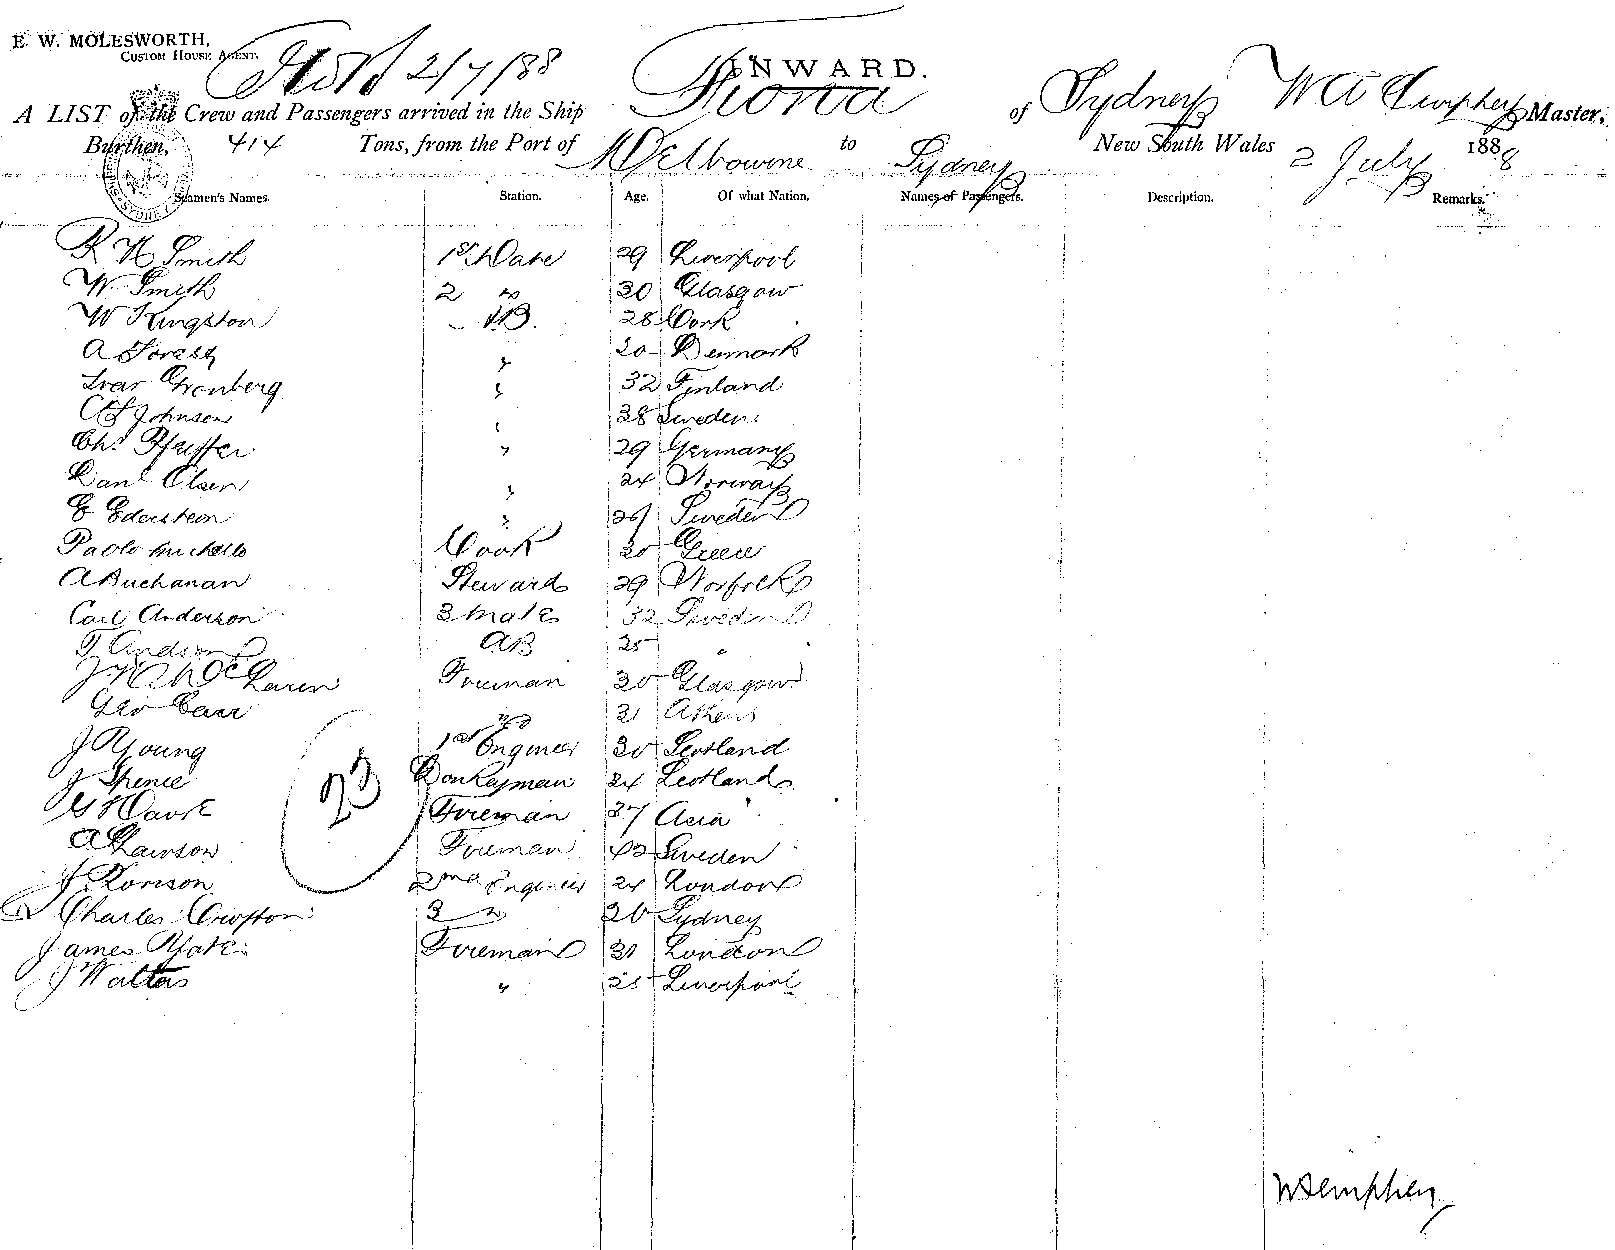 E. W. MOLESWORTH,
CUSTOM HOUSE AGENT.
2/7/88
INWARD.
A LIST of the Crew and Passengers arrived in the Ship Fiona of Sydney W A Master,
Burthen, 414 Tons, from the Port of Melbourne to Sydney New South Wales 2 July 1888
Seamen's Names. Station. Age. Of what Nation. Names of Passengers. Description. Remarks.
R H Smith 1st Mate 29 Liverpool
W Smith 2 " 30 Glasgow
W Kingston AB. 28 Cork
A 20 Denmark
Ivar Gronberg " 32 Finland
Johnson " 38 Sweden
Chs " 29 Germany
Danl Olsen " 24 Norway
E " Sweden
Paolo Cook 20 Greece
A Buchanan Steward 29 Norfolk
Carl Anderson 3 Mate 32 Sweden
AB 25 "
McLaren Fireman 30 Glasgow
Geo Carr do 31 Athens
J Young 1st Engineer 30 Scotland
J Spence Donkeyman 24 Scotland
Fireman 37 Asia
A Fireman 42 Sweden
J 2nd Engineer 24 London
Charles 3 " 26 Sydney
James Fireman 31 London
J Walters " 25 Liverpool
23